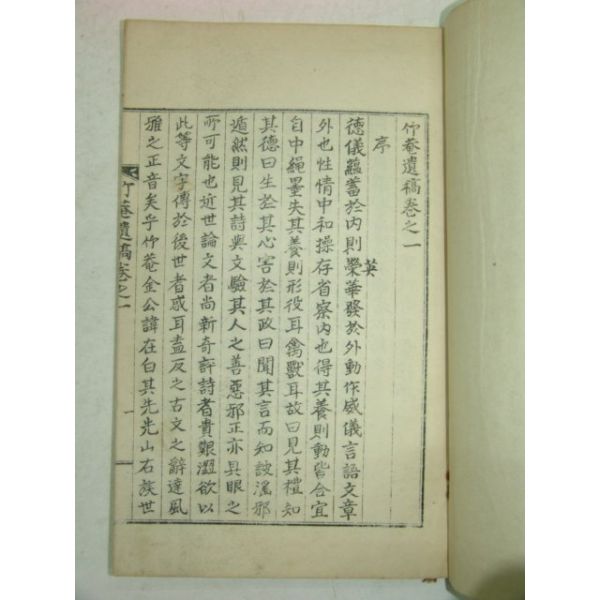 竹菴遺稿卷之一
序
德儀蘊蓄於內則榮華發於外動作威儀言語文章
英
外也性情中和操存省察內也得其養則動皆合宜
自中繩墨失其養則形役耳禽獸耳故曰見其禮知
其德曰生於其心害於其政曰聞其言而知詖淫邪
遁然則見其詩與文驗其人之善惡邪正亦具眼之
所可能也近世論文者尚新奇評詩者貴艱澀欲以
此等文字傳於後世者惑耳盍反之古文之辭達風
雅之正音矣乎竹菴金公諱在白其先光山右族世
竹菴遺稿卷之一
一